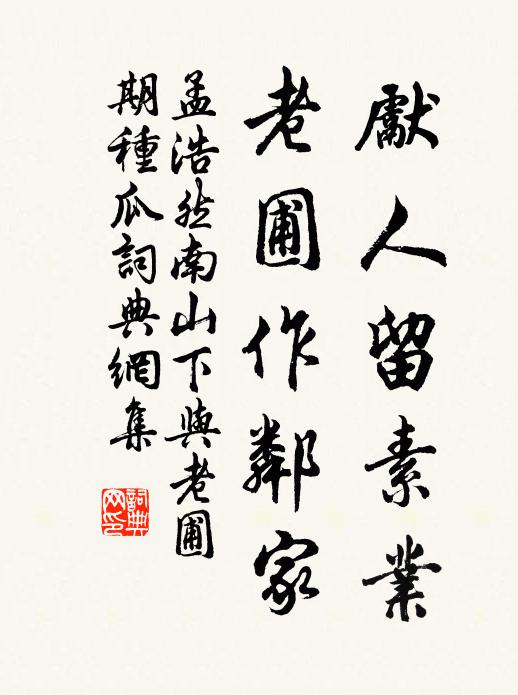 獻人留素業
老圃作鄰家
孟浩然南山下與老圃
期種瓜詞典網集
詞典
网印